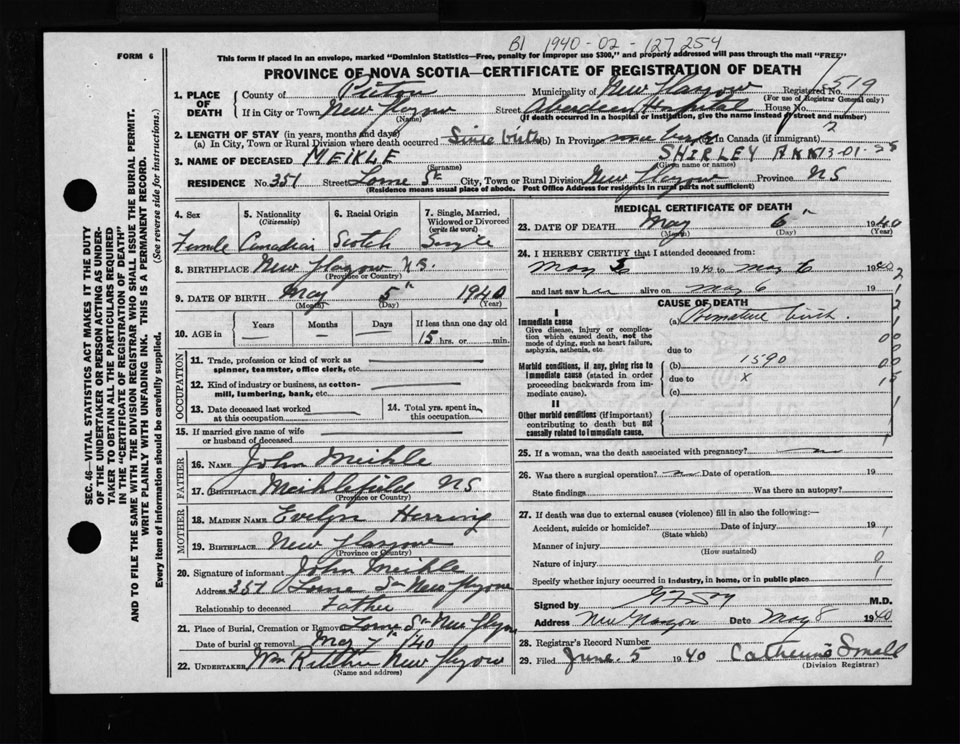 B1 1940-02-127254
FORM 6
This form if placed in an envelope, marked "Dominion Statistics—Free, penalty for improper use $300," and properly addressed will pass through the mail "FREE"
PROVINCE OF NOVA SCOTIA—CERTIFICATE OF REGISTRATION OF DEATH
1. PLACE OF DEATH County of Pictou Municipality of New Glasgow Registered No. 519
(For use of Registrar General only)
If in City or Town New Glasgow (Name) Street Aberdeen Hospital House No.
(If death occurred in a hospital or institution, give the name instead of street and number)
2. LENGTH OF STAY (in years, months and days)
(a) In City, Town or Rural Division where death occurred Since birth (b) In Province since birth (c) In Canada (if immigrant)
2
3. NAME OF DECEASED MEIKLE (Surname) SHIRLEY ANN (Given name or names) 13-01-28
RESIDENCE No. 351 Street Lorne St City, Town or Rural Division New Glasgow Province NS
(Residence means usual place of abode. Post Office Address for residents in rural parts not sufficient)
4. Sex 5. Nationality (Citizenship) 6. Racial Origin 7. Single, Married, Widowed or Divorced (write the word)
Female Canadian Scotch Single
8. BIRTHPLACE New Glasgow N.S.
(Province or Country)
9. DATE OF BIRTH May 5th 1940
(Month) (Day) (Year)
10. AGE in Years Months Days If less than one day old
15 hrs. or min.
OCCUPATION
11. Trade, profession or kind of work as spinner, teamster, office clerk, etc.
12. Kind of industry or business, as cotton-mill, lumbering, bank, etc.
13. Date deceased last worked at this occupation
14. Total yrs. spent in this occupation.
15. If married give name of wife or husband of deceased
FATHER
16. NAME John Meikle
17. BIRTHPLACE Meiklefield NS
(Province or Country)
MOTHER
18. MAIDEN NAME Evelyn Herring
19. BIRTHPLACE New Glasgow
(Province or Country)
20. Signature of informant John Meikle
Address 351 Lorne St New Glasgow
Relationship to deceased Father
21. Place of Burial, Cremation or Removal Lorne St New Glasgow
Date of burial or removal May 7th /40
22. UNDERTAKER Wm Ritchie New Glasgow
(Name and address)
MEDICAL CERTIFICATE OF DEATH
23. DATE OF DEATH May 6th 1940
(Month) (Day) (Year)
24. I HEREBY CERTIFY that I attended deceased from:
May 6 1940 to May 6 1940
and last saw her alive on May 6 19
CAUSE OF DEATH
I
Immediate cause (a) Premature birth.
Give disease, injury or complication which caused death, not the mode of dying, such as heart failure, asphyxia, asthenia, etc.
due to
Morbid conditions, if any, giving rise to immediate cause (stated in order proceeding backwards from immediate cause).
(b) 1590
due to x
(c)
II
Other morbid conditions (if important) contributing to death but not causally related to immediate cause.
25. If a woman, was the death associated with pregnancy?
26. Was there a surgical operation? no Date of operation 19
State findings Was there an autopsy?
27. If death was due to external causes (violence) fill in also the following:—
Accident, suicide or homicide? Date of injury 19
(State which)
Manner of injury
(How sustained)
Nature of injury
Specify whether injury occurred in industry, in home, or in public place
Signed by M.D.
Address New Glasgow Date May 8 1940
28. Registrar's Record Number
29. Filed June 5 1940 Catherine Small
(Division Registrar)
SEC. 46—VITAL STATISTICS ACT MAKES IT THE DUTY
OF THE UNDERTAKER OR PERSON ACTING AS UNDER-
TAKER TO OBTAIN ALL THE PARTICULARS REQUIRED
IN THE "CERTIFICATE OF REGISTRATION OF DEATH"
AND TO FILE THE SAME WITH THE DIVISION REGISTRAR WHO SHALL ISSUE THE BURIAL PERMIT.
WRITE PLAINLY WITH UNFADING INK. THIS IS A PERMANENT RECORD.
Every item of information should be carefully supplied. (See reverse side for instructions.)